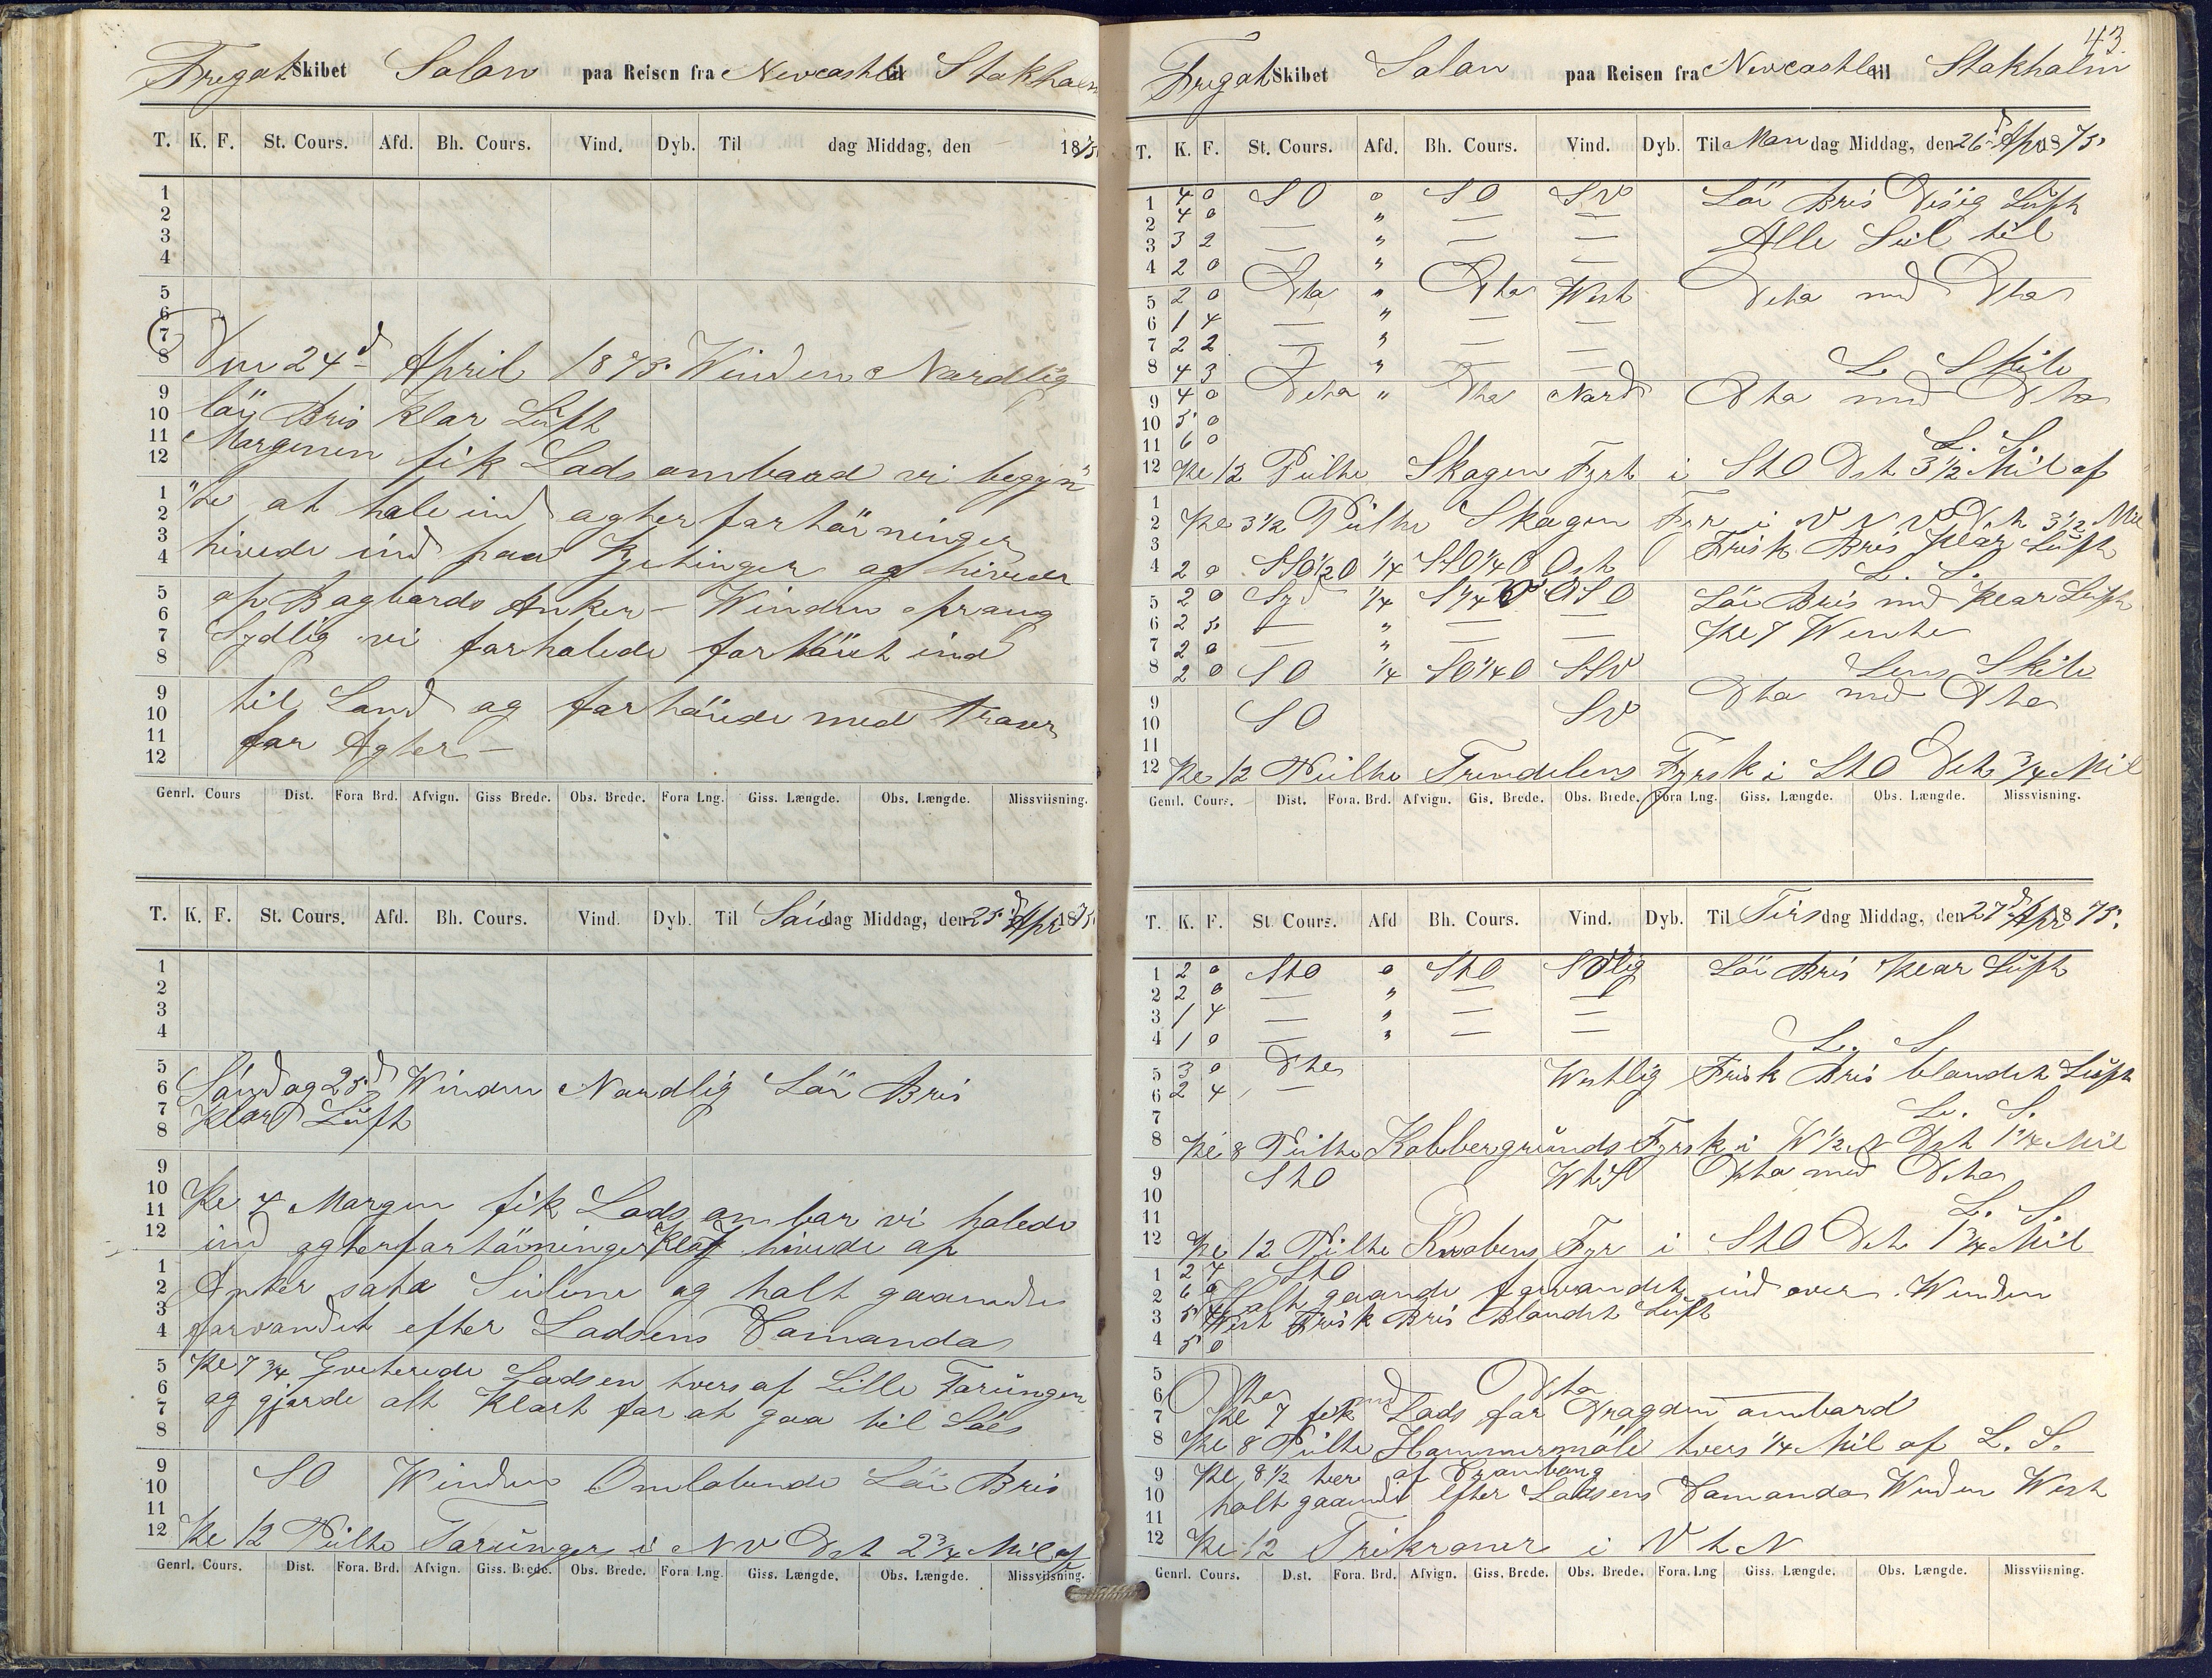 Fregat Skibet Solon paa Reisen fra Newcastle til Stokholm
T. K. F. St. Cours. Afd. Bh. Cours. Vind. Dyb. Til dag Middag, den 1875
1
2
3
4
5
6
7
8
Den 24d April 1875. Winden Nordlig
9
löi Bris Klar Luft
10
11
Morgenen fik Lods ombord vi begyn
12
1
te at hale ind agterfortöiningen
2
3
hivede ind paa Kjetinger og hivede
4
5
op Bagbords Anker – Winden sprang
6
7
Sydlig vi forhalede fortöiet ind
8
9
til Land og fortöiede med Traser
10
11
for Agter –
12
Genrl. Cours Dist. Fora Brd. Afvign. Giss Brede. Obs. Brede. Fora Lng. Giss. Længde. Obs. Længde. Missviisning.
T. K. F. St. Cours. Afd. Bh. Cours. Vind. Dyb. Til Sön dag Middag, den 25d Apr 1875
1
2
3
4
5
6 Söndag 25d Winden Nordlig Löi Bris
7
8 Klar Luft
9
10
11 Kl 4 Morgen fik Lods ombor vi halede
12 ind agterfortöiningen Kl 5 hivede op
1
2 Anker satte Seilene og holt gaaende
3
4 farvandet efter Lodsens Comando
5 Kl 7 3/4 Qviterede Lodsen tvers af Lille Torungen
6
7 og gjorde alt Klart for at gaa til Söes
8
9
10 SO Winden Omlobende Löi Bris
11
12 Kl 12 Peilte Torungen i NV Dst 2 3/4 Mil af
Genrl. Cours. Dist. Fora. Brd. Afvign. Giss. Brede. Obs. Brede. Fora Lng. Giss. Længde. Obs. Længde. Missviisning.
43
Fregat Skibet Solon paa Reisen fra Newcastle til Stokholm
T. K. F. St. Cours. Afd. Bh. Cours. Vind. Dyb. Til Man dag Middag, den 26d Apr 1875
1 4 0 SO 0 SO SV Löi Bris Disig Luft
2 4 0 — " — —
3 3 2 — " — — Alle Seil til
4 2 0 — " — —
5 2 0 Dto " Dto West Dito med Dto
6 1 4 — " — —
7 2 2 — " — —
8 4 3 — " — — L. Skibe
9 4 0 Dito " Dto Nord Dto med Dto
10 5 0
11 6 0 L. S.
12 Kl 12 Peilte Skagen Fyrt i StO Dst 3 1/2 Mil af
1
2 Kl 3 1/2 Peilte Skagen Fyr i VNV Dst 3 1/2 Mil
3 Frisk Bris Klar Luft
4 2 0 SSO 1/2 O 1/4 SSO 1/4 O Ost L. S.
5 2 0 Syd 1/4 S 1/4 V OSO Löi Bris med Klar Luft
6 2 5 — " — — Kl 7 Wendte
7 2 0 — " — —
8 2 0 SO 1/4 SO 1/4 O SSV Lens Skibe
9 Dto med Dto
10 SO SV
11
12 Kl 12 Peilte Trindelens Fyrsk i StO Dst 3/4 Mil
Genrl. Cours. Dist. Fora. Brd. Afvign. Gis. Brede. Obs. Brede. Fora Lng. Giss. Længde. Obs. Længde. Missvisning.
T. K. F. St Cours. Afd Bh. Cours. Vind. Dyb. Til Tirs dag Middag, den 27d Apr 1875.
1 2 0 StO 0 StO SVlig Löi Bris Klar Luft
2 2 0 — " — —
3 1 4 — " — —
4 1 0 — " — — L. S.
5 3 0 Dto Westlig Frisk Bris blandet Luft
6 2 4 —
7 L. S.
8 Kl 8 Peilte Kobbergrunds Fyrsk i W 1/2 N Dst 1 1/4 Mil
9 StO WtS Dto med Dito
10
11 L. S.
12 Kl 12 Peilte Knobens Fyr i StO Dst 1 3/4 Mil
1 2 4 StO
2 6 0 Holt gaaende farvandet ind over. Winden
3 5 4 West Frisk Bris Blandet Luft
4 5 0
5
6 Dto med Dito
7 Kl 7 fik Lods for Dragden ombord
8 Kl 8 Peilte Hammermöle tvers 1/4 Mil af L. S.
9 Kl 8 1/2 tvers af Cronborg
10 holt gaaende efter Lodsens Comando Winden West
11
12 Kl 12 Trikroner i VtN
Genrl. Cours. Dist. Fora. Brd. Afvign. Giss. Brede. Obs. Brede. Fora. Lng Giss. Længde. Obs. Længde. Missviisning.